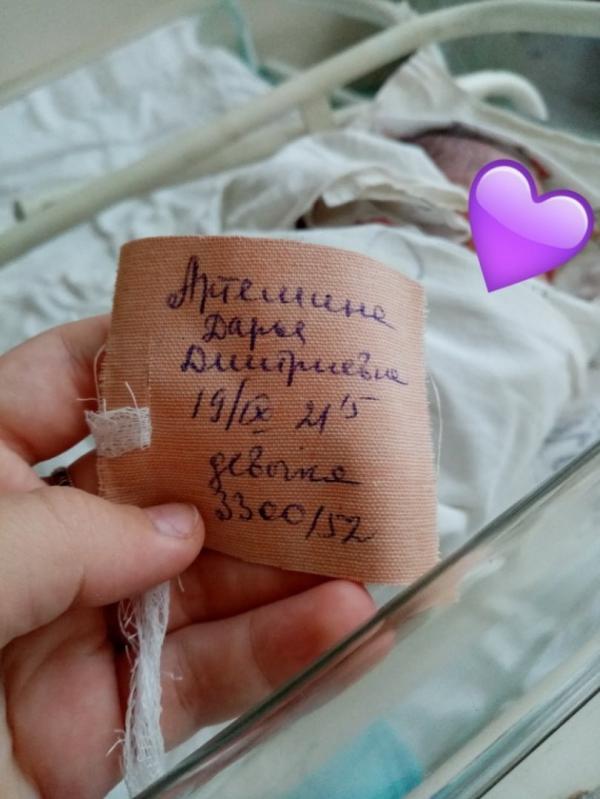 Артемина
Дарья
Дмитриевна
19/IX 21 15
девочка
3300/52